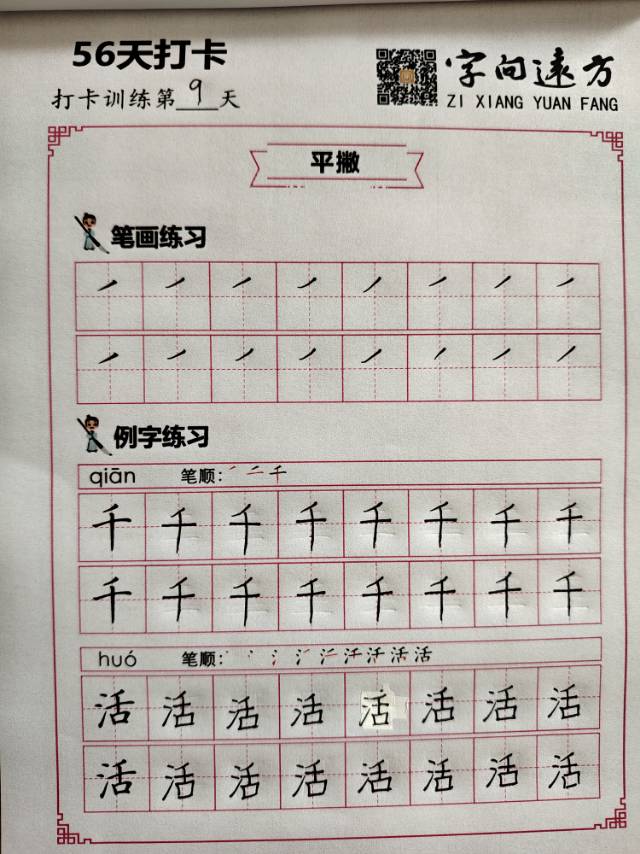 56天打卡
字向远方
打卡训练第9天
ZI XIANG YUAN FANG
平撇
笔画练习
㇒ ㇒ ㇒ ㇒ ㇒ ㇒ ㇒ ㇒
㇒ ㇒ ㇒ ㇒ ㇒ ㇒ ㇒ ㇒
例字练习
qiān 笔顺: ㇒ 二 千
千 千 千 千 千 千 千 千
千 千 千 千 千 千 千 千
huó 笔顺:
活 活 活 活 活 活 活 活
活 活 活 活 活 活 活 活